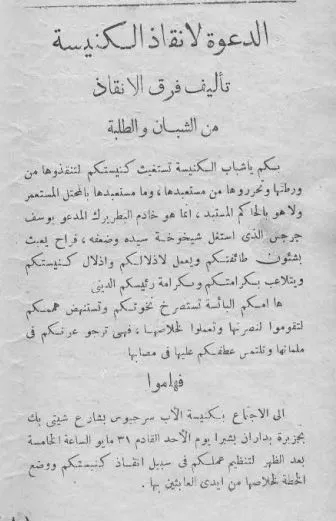 الدعوة لانقاذ الكنيسة
تأليف فرق الانقاذ
من الشبان والطلبة
بكم ياشباب الكنيسة تستغيث كنيستكم لتنقذوها من
ورطتها وتحرروها من مستعبدها، وما مستعبدها بالمحتل المستعمر
ولا هو بالحاكم المستبد، انما هو خادم البطريرك المدعو يوسف
جرجس الذى استغل شيخوخة سيده وضعفه، فراح يعبث
بشئون طائفتكم ويعمل لاذلالكم واذلال كنيستكم
ويتلاعب بكرامتكم وبكرامة رئيسكم الدينى
ها امكم البائسة تستصرخ نخوتكم وتستنهض هممكم
لتقوموا لنصرتها وتعملوا لخلاصها، فهى ترجو عونكم فى
ملماتها وتلتمس عطفكم عليها فى مصابها
فهلموا
الى الاجتماع بكنيسة الآب سرجيوس بشارع شيتى بك
بجزيرة بدران بشبرا يوم الأحد القادم ٣١ مايو الساعة الخامسة
بعد الظهر لتنظيم عملكم فى سبيل انقاذ كنيستكم ووضع
الخطة لخلاصها من ايدى العابثين بها.